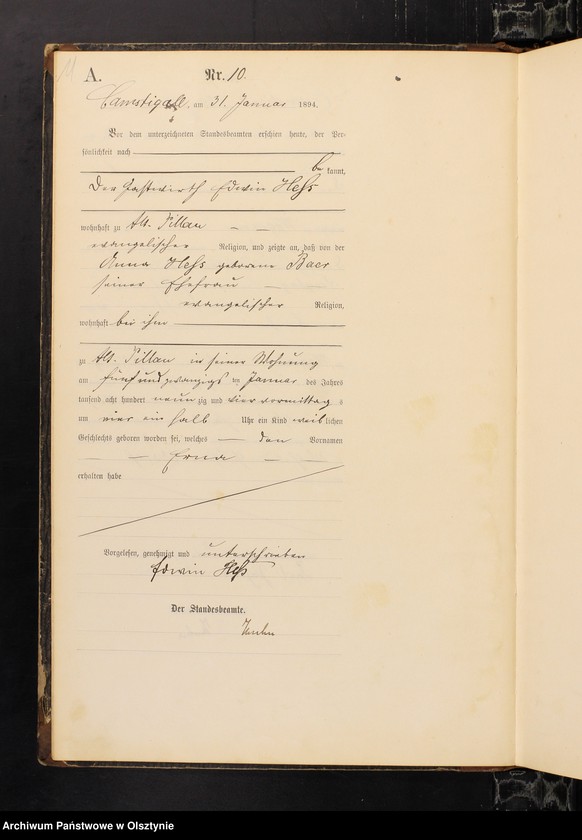 A. Nr. 10.
Camstigall, am 31. Januar 1894.
Vor dem unterzeichneten Standesbeamten erschien heute, der Per-
sönlichkeit nach
be kannt,
der Gastwirth Edwin Heß
wohnhaft zu Alt. Pillau
evangelischer Religion, und zeigte an, daß von der
Anna Heß geborene Baer
seiner Ehefrau
evangelischer Religion,
wohnhaft bei ihm
zu Alt. Pillau in seiner Wohnung
am fünf und zwanzigs ten Januar des Jahres
tausend acht hundert neun zig und vier vormittag s
um vier ein halb Uhr ein Kind weib lichen
Geschlechts geboren worden sei, welches den Vornamen
Erna
erhalten habe
Vorgelesen, genehmigt und unterschrieben
Edwin Heß
Der Standesbeamte.
Archiwum Państwowe w Olsztynie